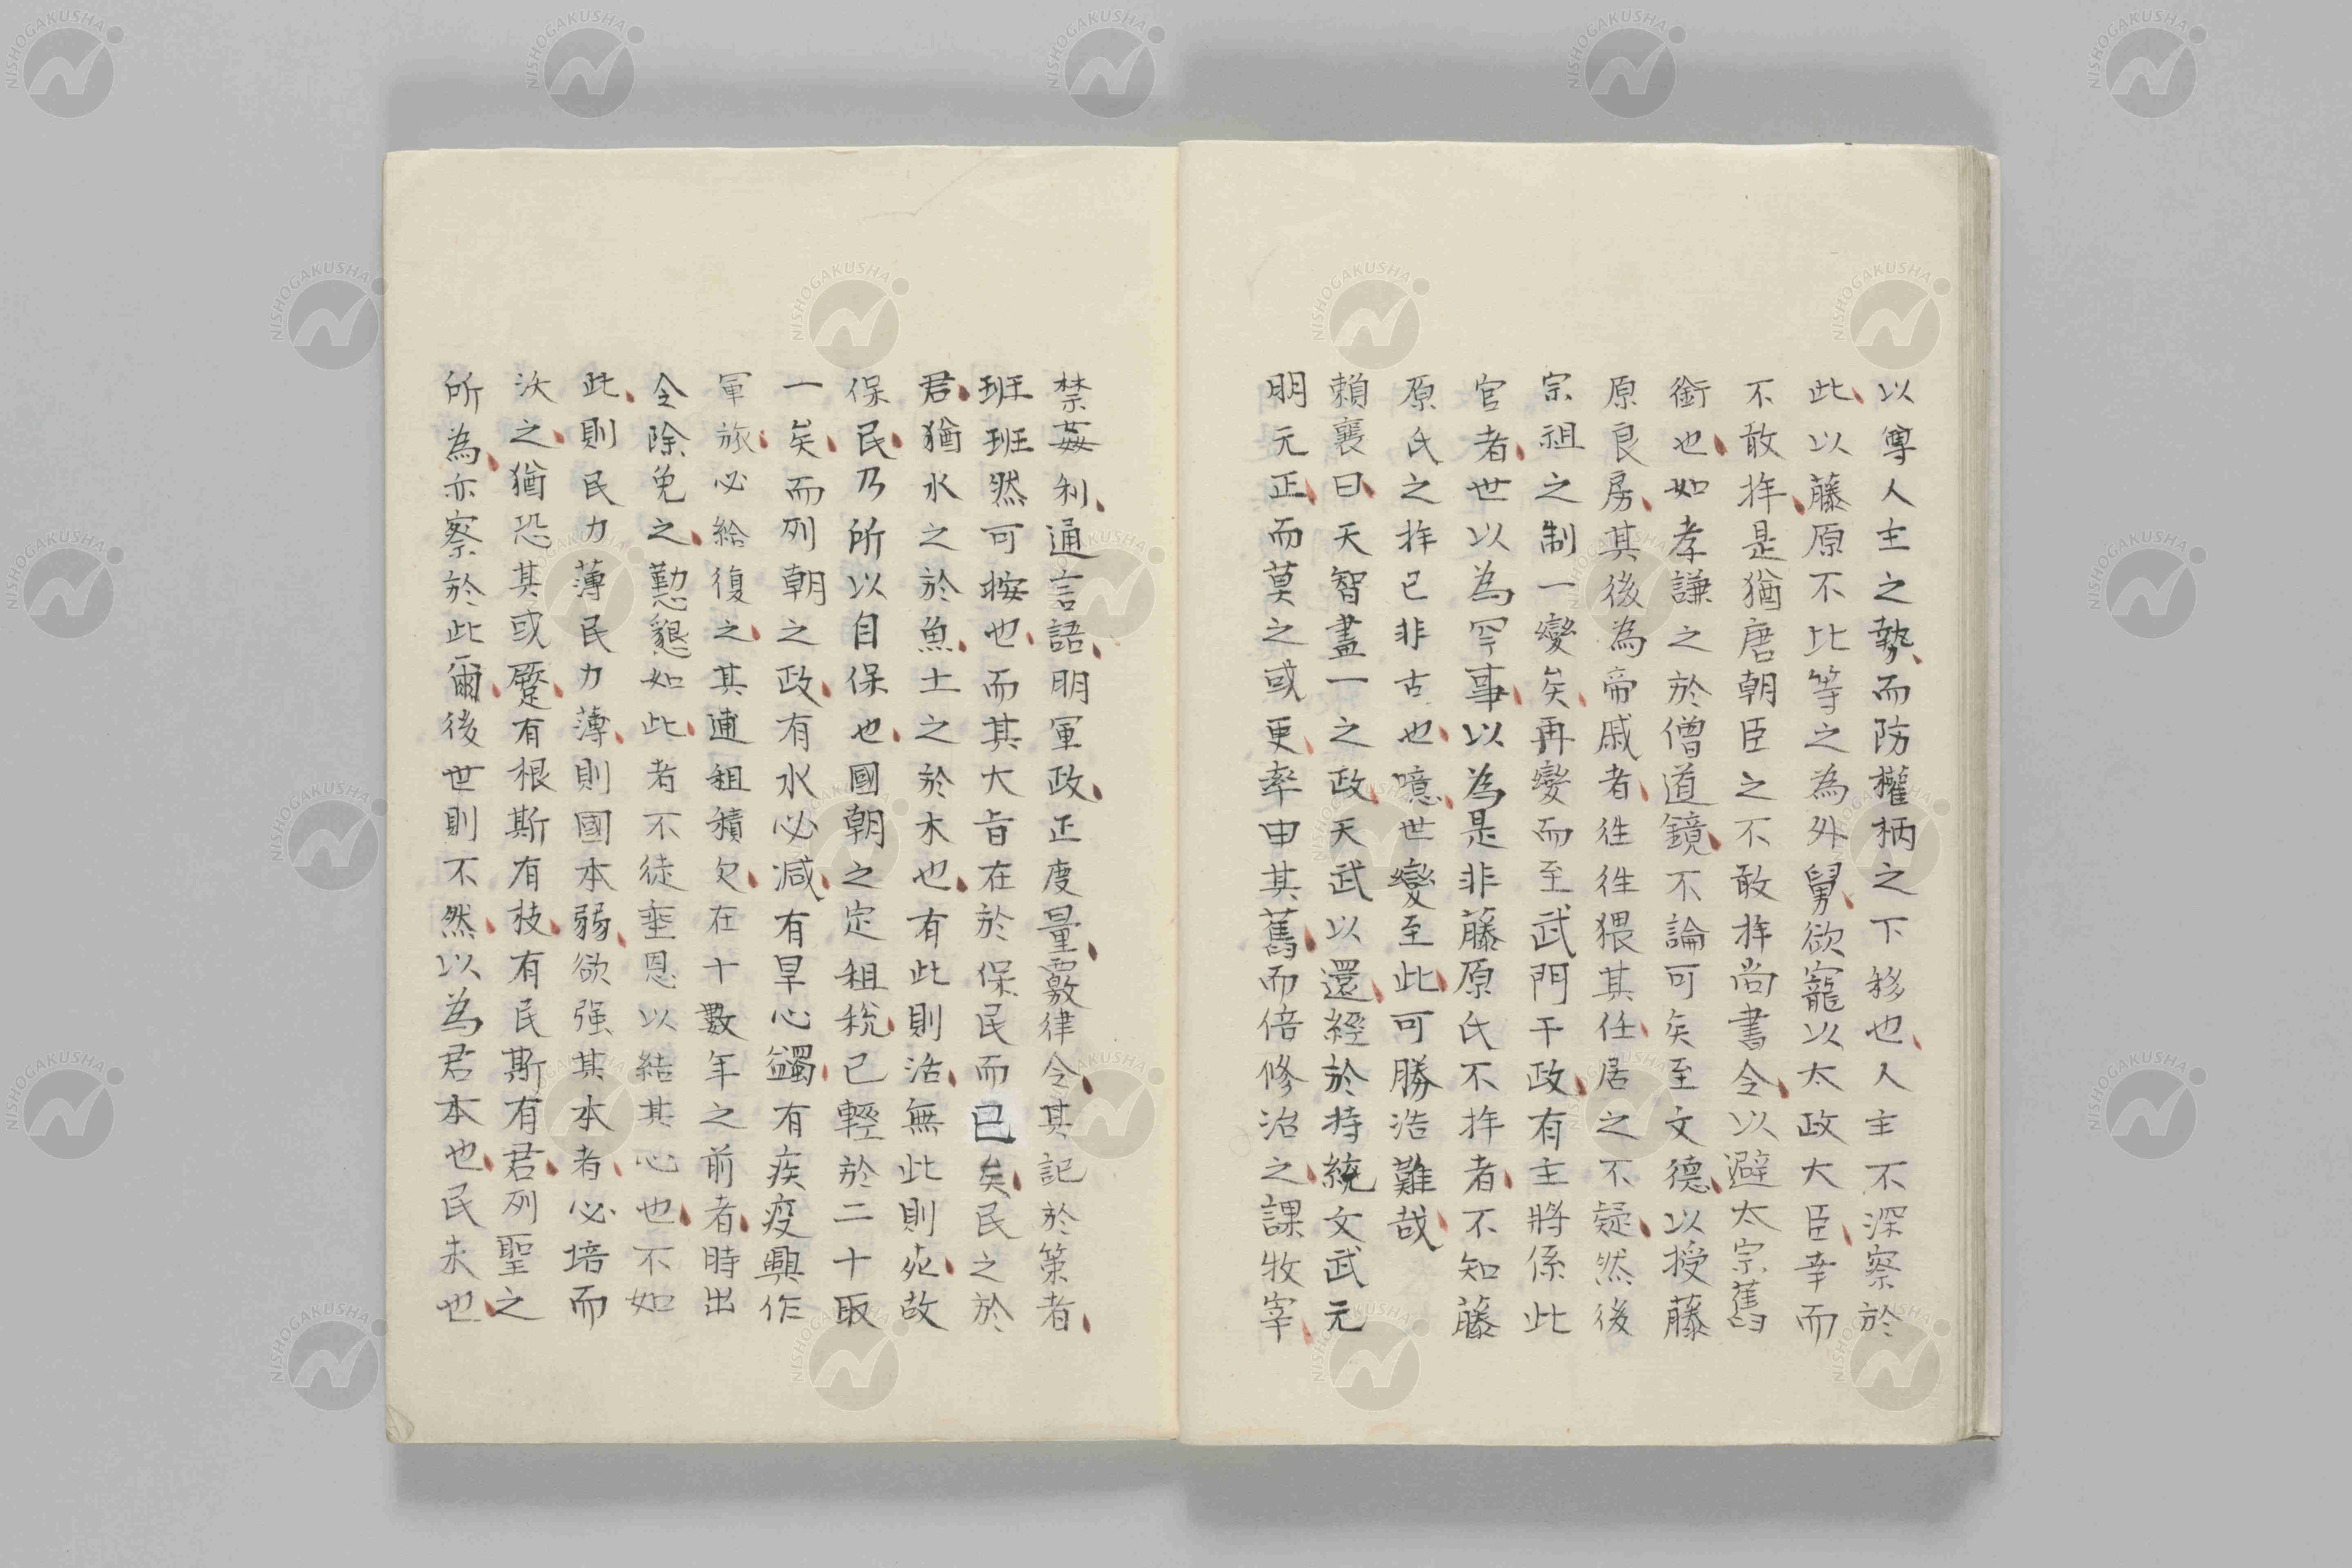 以尊人主之勢而防權柄之下移也人主不深察於
此以藤原不比等之為外舅欲寵以太政大臣幸而
不敢拜是猶唐朝臣之不敢拜尚書令以避太宗舊
銜也如孝謙之於僧道鏡不論可矣至文德以授藤
原良房其後為帝戚者徃徃猥其任居之不疑然後
宗祖之制一變矣再變而至武門干政有主將係此
官者世以為罕事以為是非藤原氏不拜者不知藤
原氏之拜已非古也噫世變至此可勝浩難哉
賴襄曰天智盡一之政天武以還經於持統文武元
明元正而莫之或更率由其舊而倍修治之課牧宰
禁姦利通言語明軍政正度量覈律令其記於策者
班班然可按也而其大旨在於保民而已矣民之於
君猶水之於魚土之於木也有此則活無此則死故
保民乃所以自保也國朝之定租稅已輕於二十取
一矣而列朝之政有水必減有旱心蠲有疾疫興作
軍旅必給復之其逋租積欠在十數年之前者時出
令除免之懃懇如此者不徒垂恩以結其心也不如
此則民力薄民力薄則國本弱欲强其本者必培而
沃之猶恐其或蹙有根斯有枝有民斯有君列聖之
所為亦察於此爾後世則不然以為君本也民末也